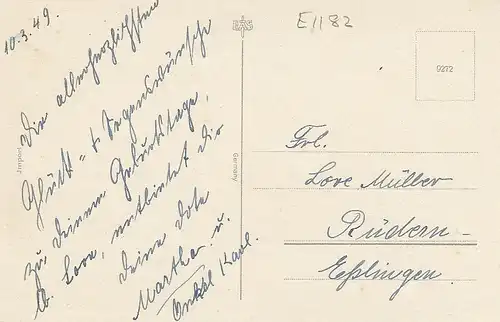 10.3.49.
Die allerherzlichsten
Glück- & Segenswünsche
zu Deinem Geburtstage,
lb. Lore, entbietet Dir
Deine Dote
Martha u.
Onkel Karl.
Import
Germany
EAS
E1182
9272
Frl.
Lore Müller
Rüdern-
Eßlingen.